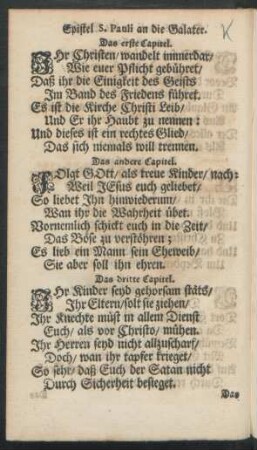 Epistel S. Pauli an die Galater.
Das erste Capitel.
IHr Christen/ wandelt immerdar/
Wie euer Pflicht gebühret/
Daß ihr die Einigkeit des Geists
Im Band des Friedens führet.
Es ist die Kirche Christi Leib/
Und Er ihr Haubt zu nennen:
Und dieses ist ein rechtes Glied/
Das sich niemals will trennen.
Das andere Capitel.
FOlgt GOtt/ als treue Kinder/ nach:
Weil JEsus euch geliebet/
So liebet Ihn hinwiederum/
Wan ihr die Wahrheit übet.
Vornemlich schickt euch in die Zeit/
Das Böse zu verstöhren;
Es lieb ein Mann sein Eheweib/
Sie aber soll ihn ehren.
Das dritte Capitel.
IHr Kinder seyd gehorsam stäts/
Ihr Eltern/ solt sie ziehen/
Ihr Knechte müst in allem Dienst
Euch/ als vor Christo/ mühen.
Ihr Herren seyd nicht allzuscharf/
Doch/ wan ihr tapfer krieget/
So seht/ daß Euch der Satan nicht
Durch Sicherheit besieget.
Das